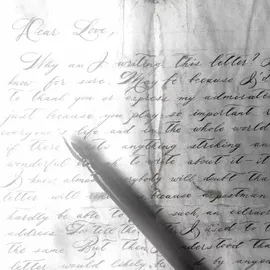 Dear Love,
Why am I writing this letter? I
know for sure. May be because I'd
to thank you or express my admiration
just because you play so important
everyone's life and in the whole world
if there exists anything striking an
wonderful to write about it - it
I know almost everybody will doubt that
letter will because a postman
hardly be able to find such an extraord
address. To tell the
the same. But then I understood tha
letter would likely be read by anyone